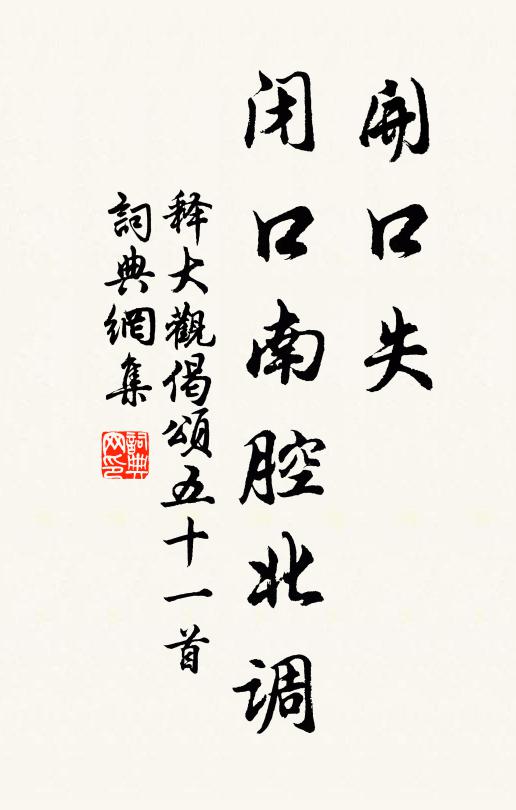 開口失
闭口南腔北调
释大觀偈頌五十一首
詞典網集
詞典网印